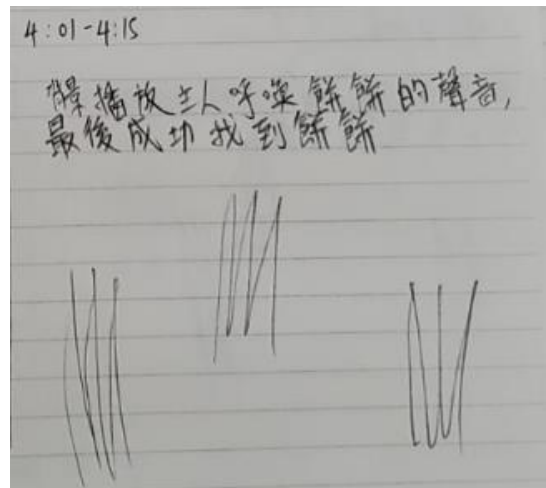 4:01-4:15
播放主人呼喚餅餅的聲音,
最後成功找到餅餅